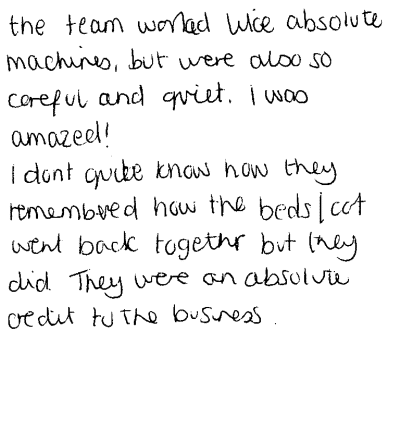 the team worked like absolute
machines, but were also so
careful and quiet. I was
amazed!
I dont quite know how they
remembered how the beds/cot
went back together but they
did. They were an absolute
credit to the business.